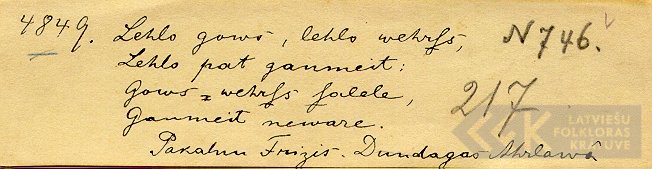 4849. Lehlo gows, lehlo wehrſs, N 746.
Lehlo pat ganmeit:
Gows = wehrſs ſalele, 217
Ganmeit neware.
Pakalnu Frizis. Dundagas Ahrlawâ
LATVIEŠU
FOLKLORAS
KRĀTUVE